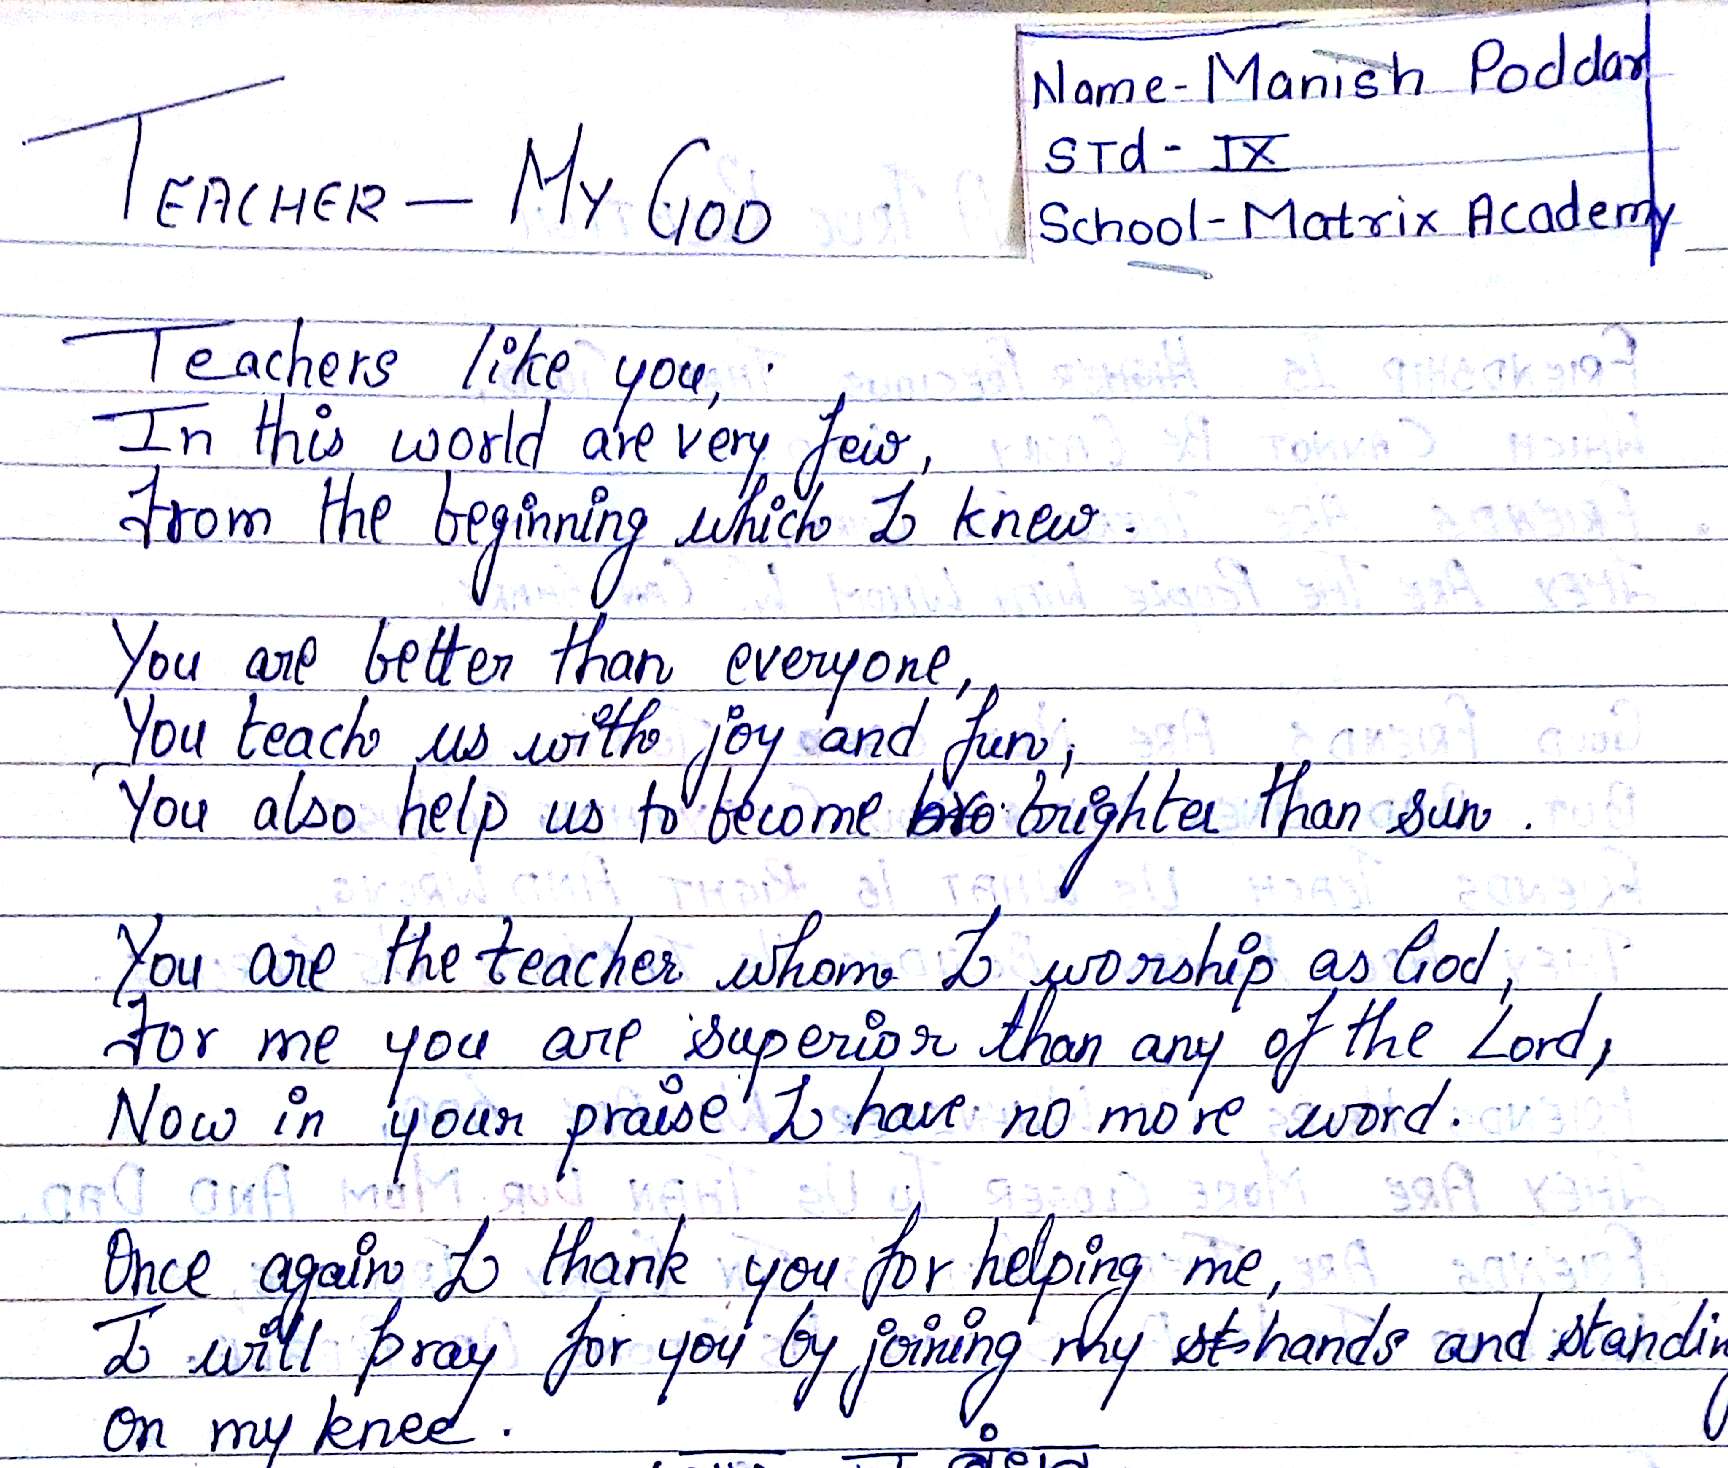 TEACHER — MY GOD
Name - Manish Poddar
STd - IX
School - Matrix Academy
Teachers like you,
In this world are very few,
From the beginning which I knew.
You are better than everyone,
You teach us with joy and fun,
You also help us to become brighter than sun.
You are the teacher whom I worship as God,
For me you are superior than any of the Lord,
Now in your praise I have no more word.
Once again I thank you for helping me,
I will pray for you by joining my hands and standing
on my knee.